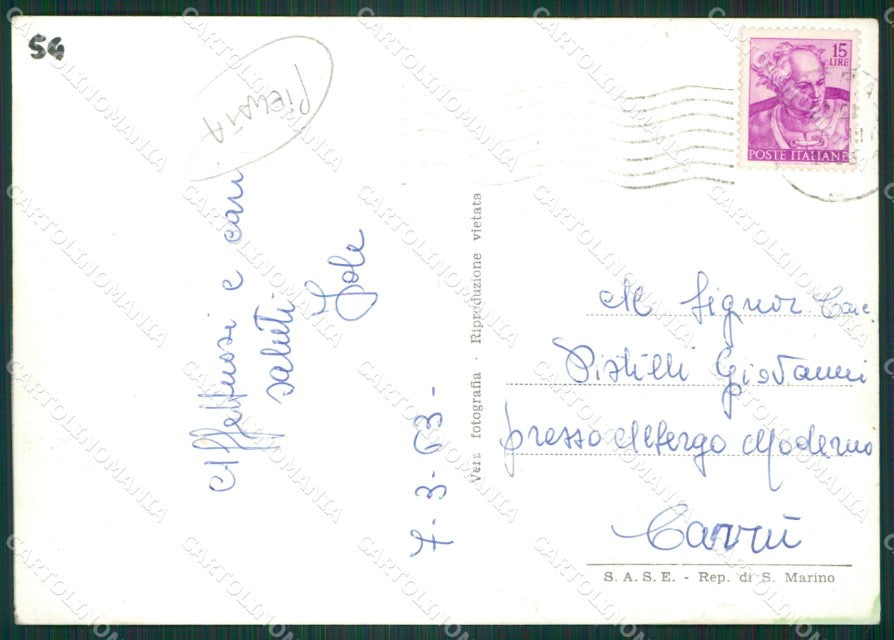 54
PIENZA
Affettuosi e cari
saluti
Jole
7-3-63-
Vera fotografia - Riproduzione vietata
15
LIRE
POSTE ITALIANE
Al Signor Cav.
Pistilli Giovanni
presso Albergo Moderno
Carrù
S.A.S.E. - Rep. di S. Marino
CARTOLINOMANIA